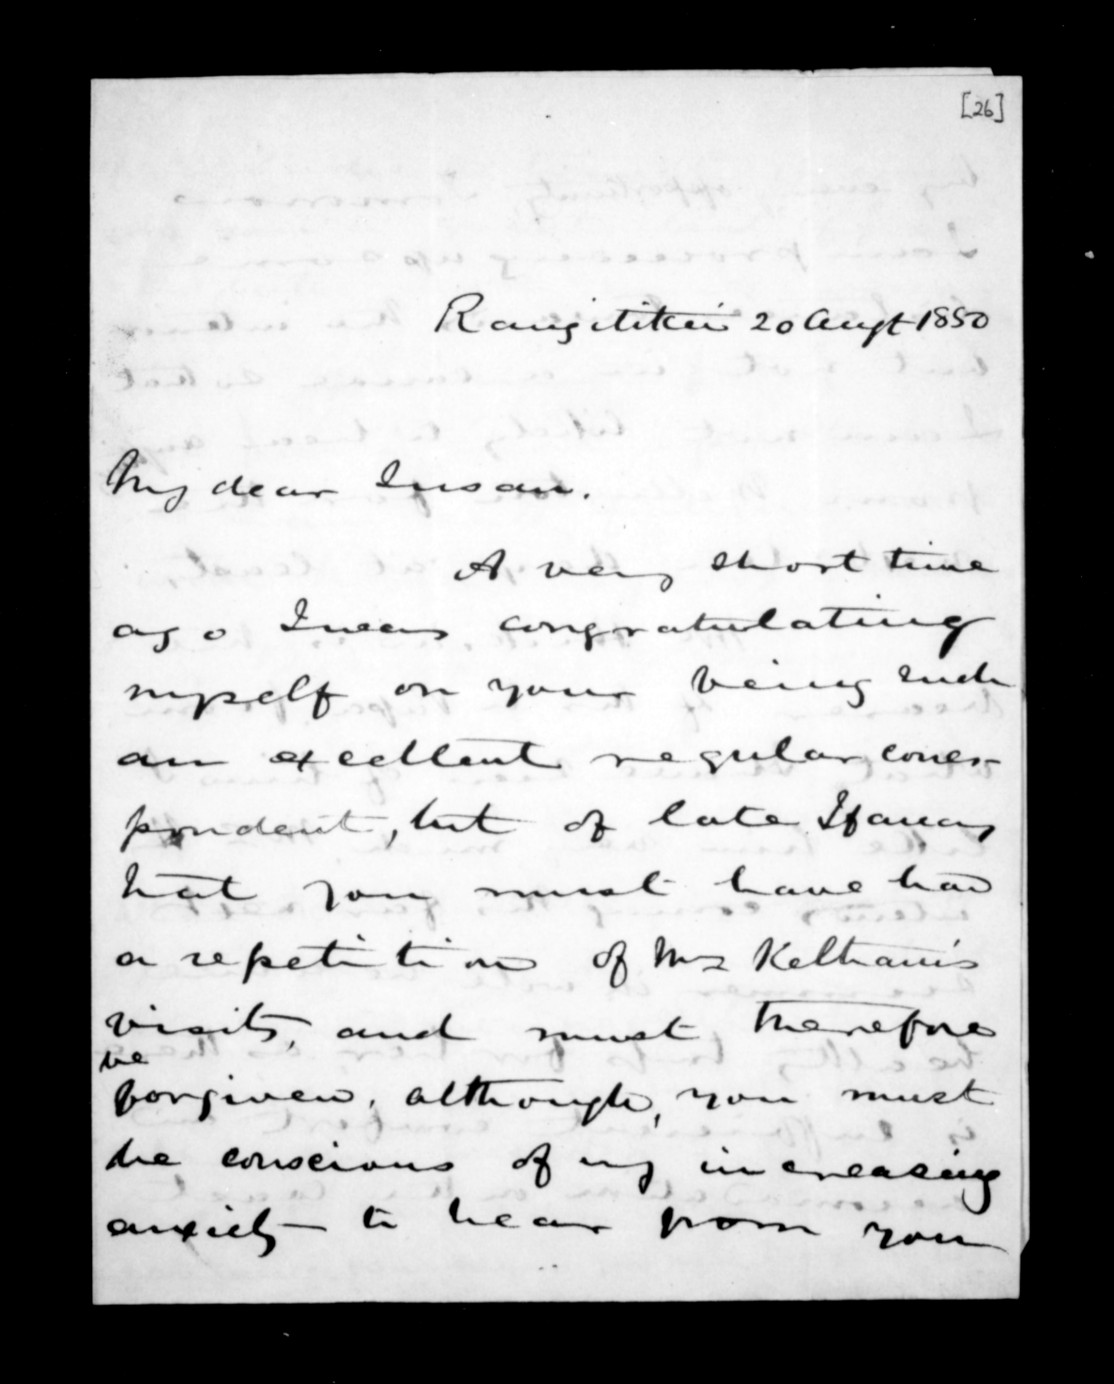 [26]
Rangitikei 20 Augt 1850
My dear Susan.
A very short time
ago I was congratulating
myself on your being such
an excellent regular corres-
pondent, but of late I fancy
that you must have had
a repetition of Mrs Kelham's
visits, and must therefore
be
forgiven, although, you must
be conscious of my increasing
anxiety to hear from you